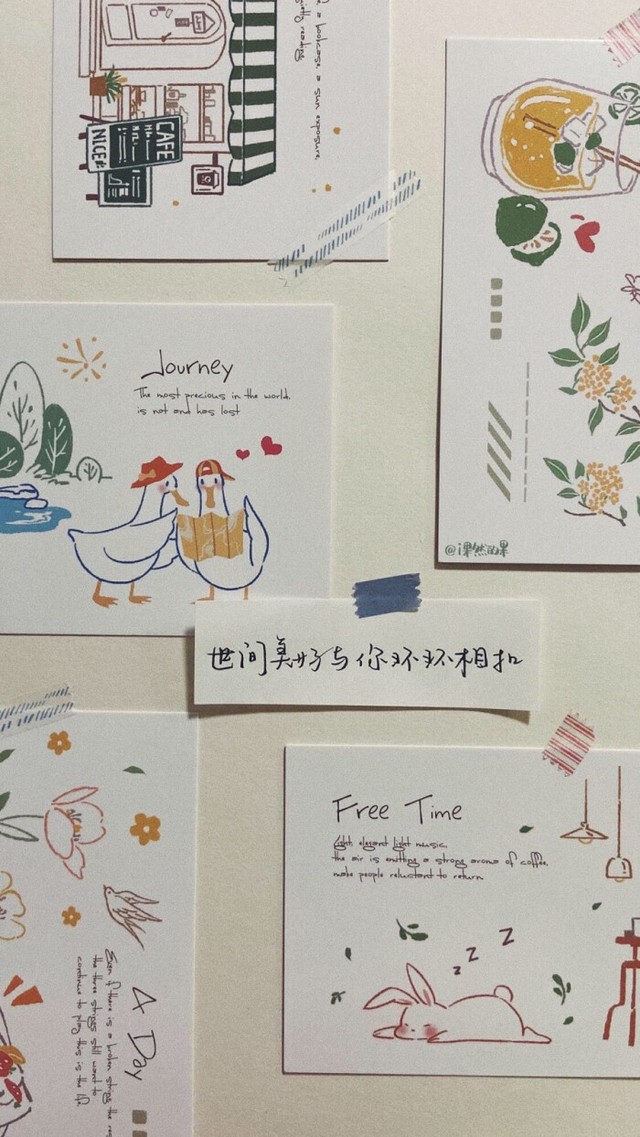 a bookcase a sun exposure
reading
CAFE
NICE
Journey
The most precious in the world
is not and has lost
@i果然泊果
世间美好与你环环相扣
Free Time
light elegant light music
the air is emitting a strong aroma of coffee
make people reluctant to return
z z z
A Day
Even if there is a broken string the
the three strings still want to
continue to play this is the life